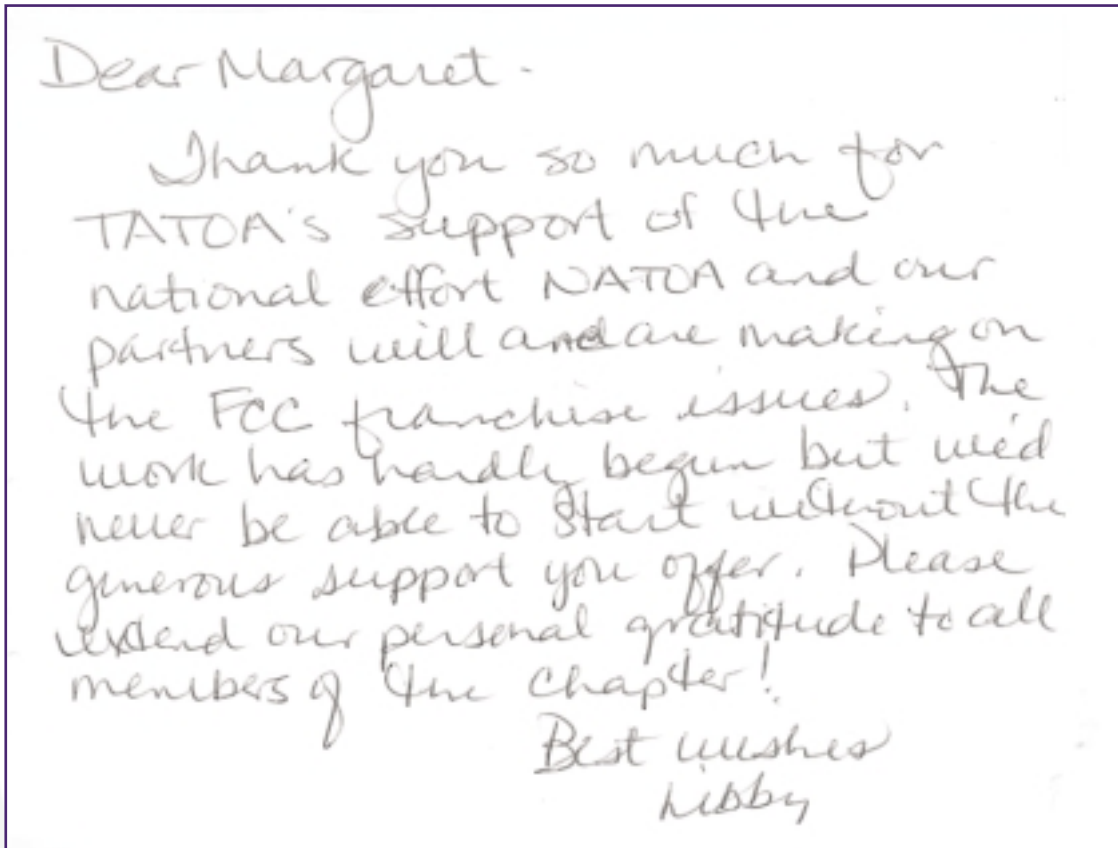 Dear Margaret -
Thank you so much for
TATOA's support of the
national effort NATOA and our
partners will and are making on
the FCC franchise issues. The
work has hardly begun but we'd
never be able to start without the
generous support you offer. Please
extend our personal gratitude to all
members of the chapter!
Best wishes
Libby